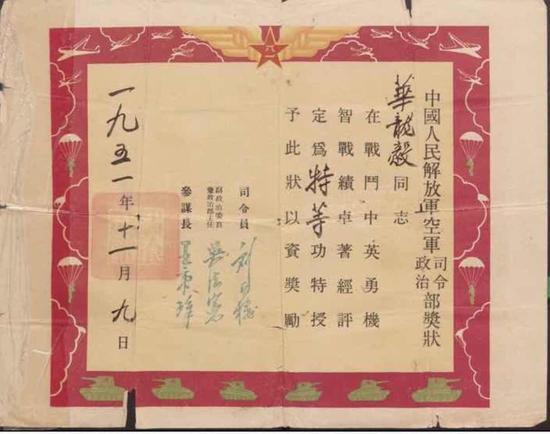 八一
中國人民解放軍空軍司令政治部獎狀
華龍毅同志
在戰鬥中英勇機
智戰績卓著經評
定爲特等功特授
予此狀以資獎勵
司令員 刘亚楼
副政治委員兼政治部主任 吳法宪
參謀長 王秉璋
一九五一年十一月九日